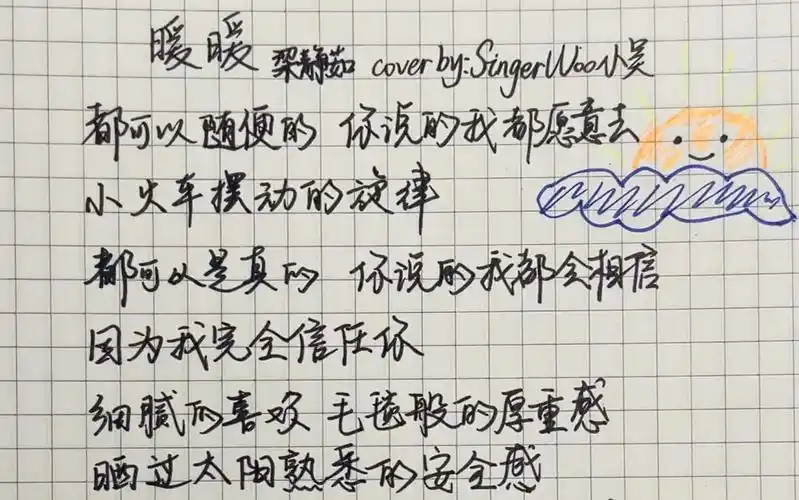 暖暖 梁静茹 cover by:SingerWoo小吴
都可以随便的 你说的我都愿意去
小火车摆动的旋律
都可以是真的 你说的我都会相信
因为我完全信任你
细腻的喜欢 毛毯般的厚重感
晒过太阳熟悉的安全感